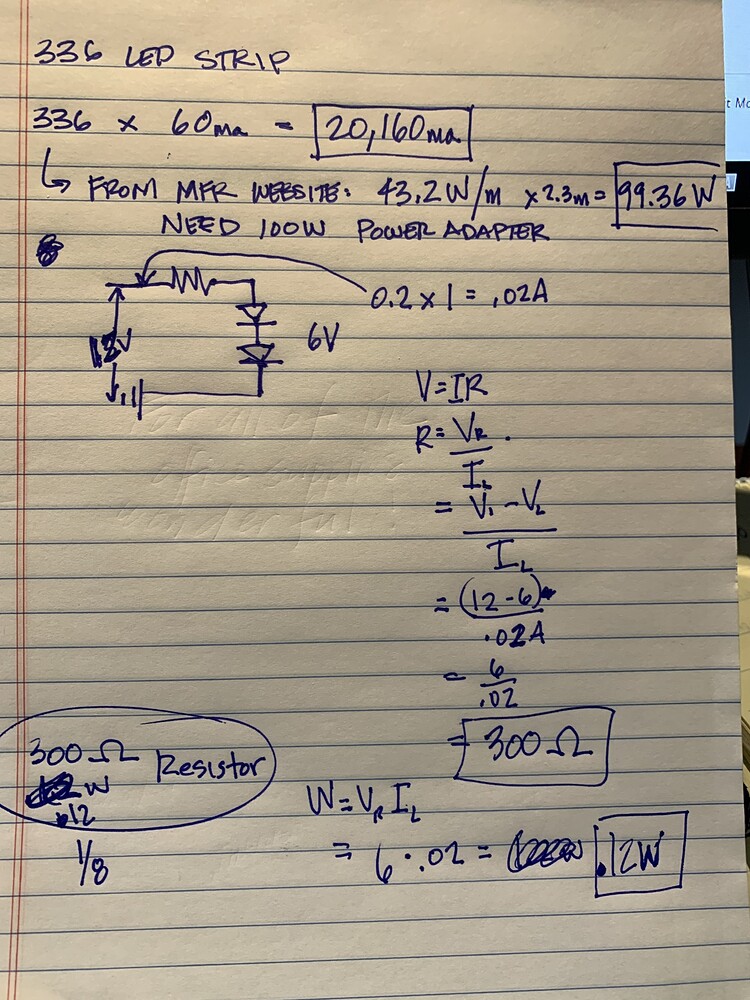 336 LED STRIP
336 x 60ma = 20,160ma
↳ FROM MFR WEBSITE: 43.2W/m x2.3m= 99.36W
NEED 100W POWER ADAPTER
0.2 x 1 = .02A
12V
6V
V=IR
R= VR
IL
= V1 - VL
IL
= (12-6)
.02A
= 6
.02
= 300Ω
300Ω Resistor
W
.12
1/8
W=VR IL
= 6 · .02 = .12W